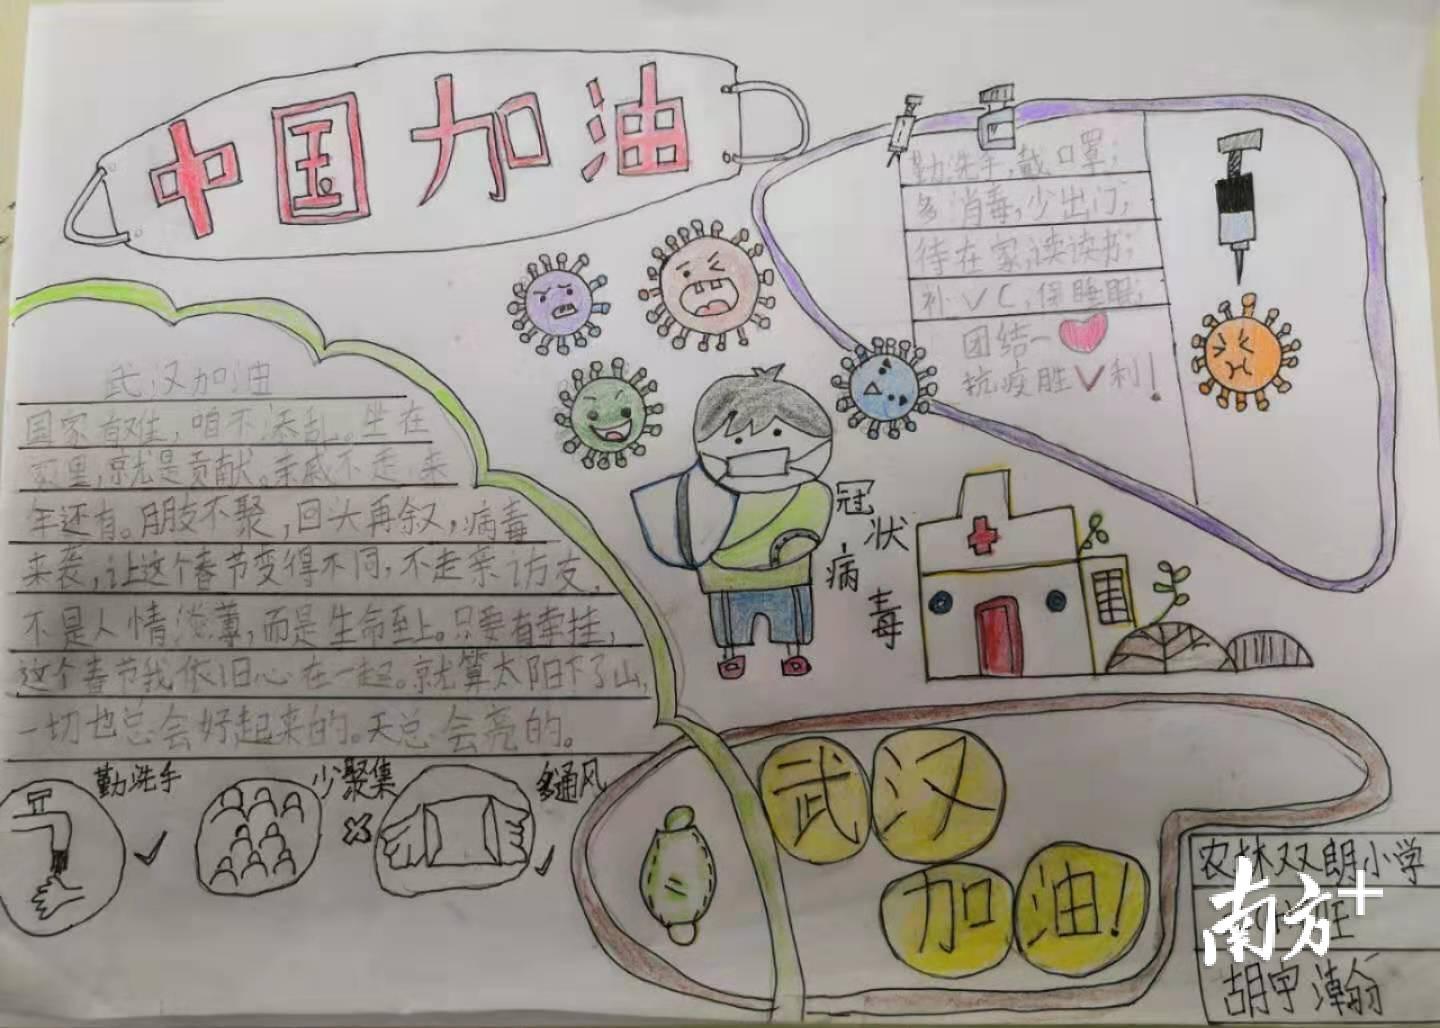 中国加油
勤洗手,戴口罩;
多消毒,少出门;
待在家,读读书;
补VC,保睡眠;
团结一
抗疫胜利!
武汉加油
国家有难,咱不添乱。坐在
家里,就是贡献。亲戚不走,来
年还有。朋友不聚,回头再叙,病毒
来袭,让这个春节变得不同,不走亲访友,
不是人情淡薄,而是生命至上。只要有牵挂,
这个春节我依旧心在一起。就算太阳下了山,
一切也总会好起来的。天总会亮的。
冠状病毒
勤洗手
少聚集
多通风
武汉
加油!
农林双朗小学
南方+
胡宇瀚